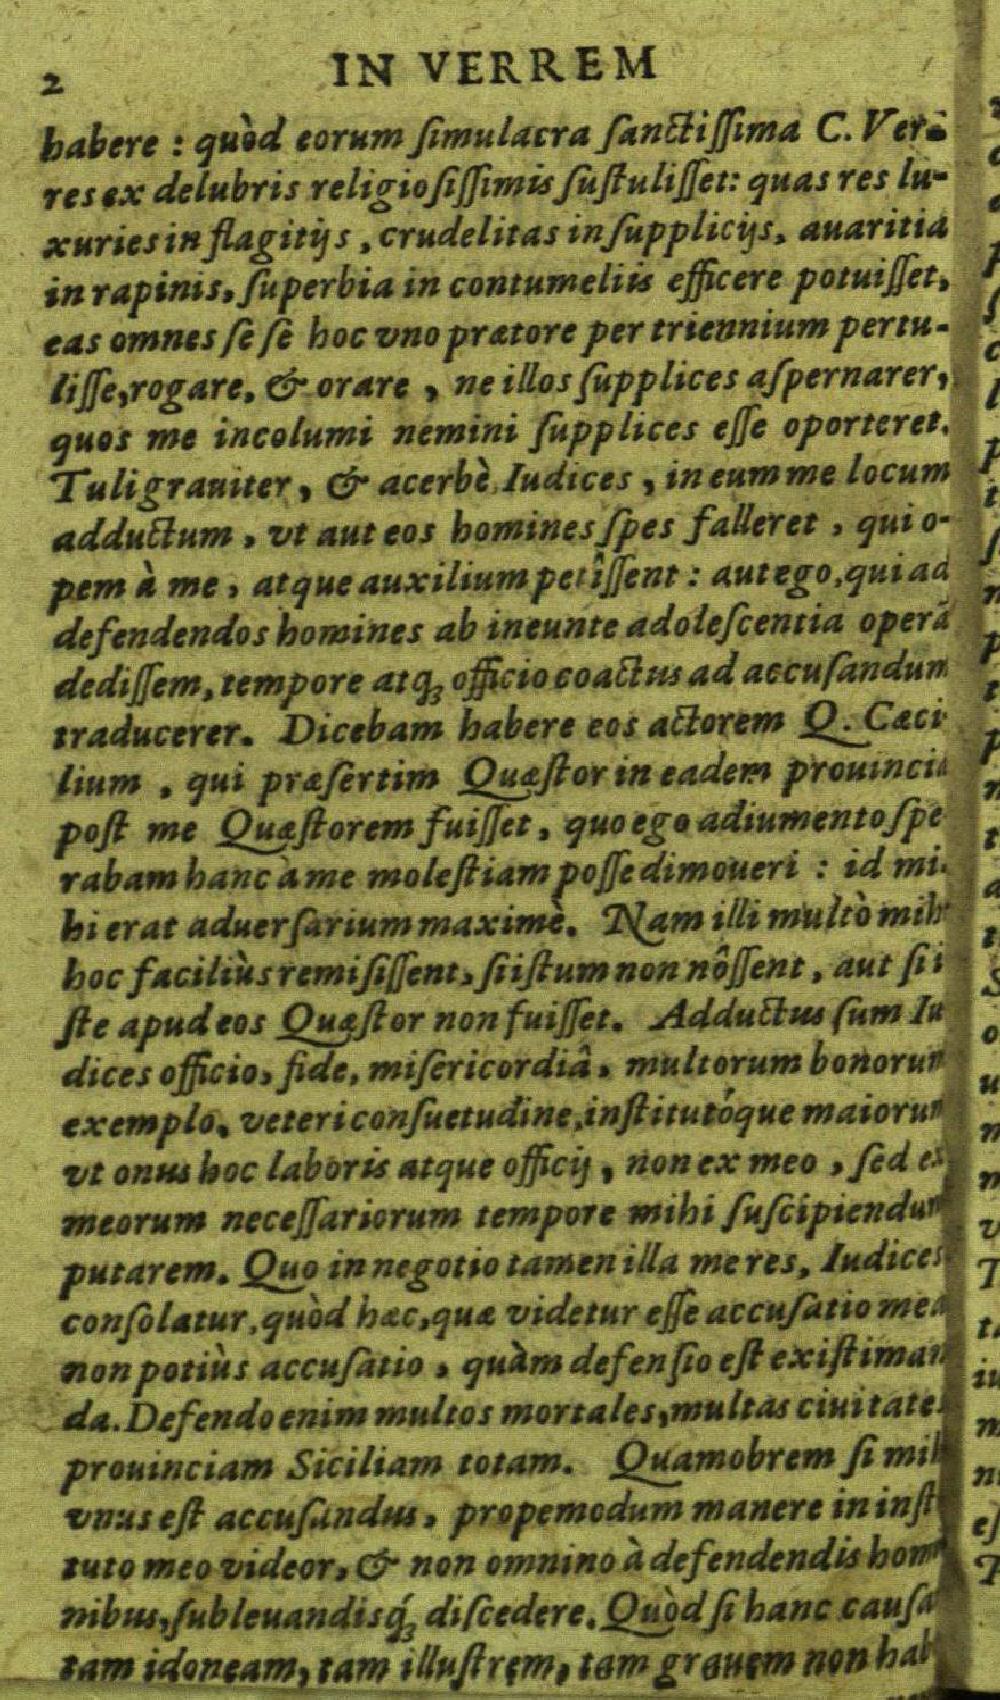 2 IN VERREM
habere : quòd eorum ſimulacra ſanctiſſima C. Ver-
res ex delubris religioſiſſimis ſuſtuliſſet: quas res lu-
xuries in flagitijs , crudelitas in ſupplicijs, auaritia
in rapinis, ſuperbia in contumeliis efficere potuiſſet,
eas omnes ſe ſe hoc vno prætore per triennium pertu-
liſſe, rogare, & orare , ne illos ſupplices aſpernarer,
quos me incolumi nemini ſupplices eſſe oporteret.
Tuli grauiter, & acerbè Iudices , in eum me locum
adductum , vt aut eos homines ſpes falleret , qui o-
pem à me , atque auxilium petîſſent : aut ego, qui ad
defendendos homines ab ineunte adoleſcentia operã
dediſſem, tempore atq; officio coactus ad accuſandum
traducerer. Dicebam habere eos actorem Q. Cæci-
lium , qui præſertim Quæſtor in eadem prouincia
poſt me Quæſtorem fuiſſet, quo ego adiumento ſpe
rabam hanc à me moleſtiam poſſe dimoueri : id mi-
hi erat aduerſarium maximè. Nam illi multò mih
hoc faciliùs remiſiſſent, ſi iſtum non nôſſent , aut ſi i
ſte apud eos Quæſtor non fuiſſet. Adductus ſum Iu
dices officio, fide, miſericordiâ, multorum bonorum
exemplo, veteri conſuetudine, inſtitutóque maiorum
vt onus hoc laboris atque officij, non ex meo , ſed ex
meorum neceſſariorum tempore mihi ſuſcipiendum
putarem. Quo in negotio tamen illa me res, Iudices
conſolatur, quòd hæc, quæ videtur eſſe accuſatio mea
non potiùs accuſatio , quàm defenſio eſt exiſtiman
da. Defendo enim multos mortales, multas ciuitates
prouinciam Siciliam totam. Quamobrem ſi mih
vnus eſt accuſandus, propemodum manere in inſt
tuto meo videor, & non omnino à defendendis hom
nibus, ſubleuandisq́; diſcedere. Quòd ſi hanc cauſa
tam idoneam, tam illuſtrem, tam grauem non hab